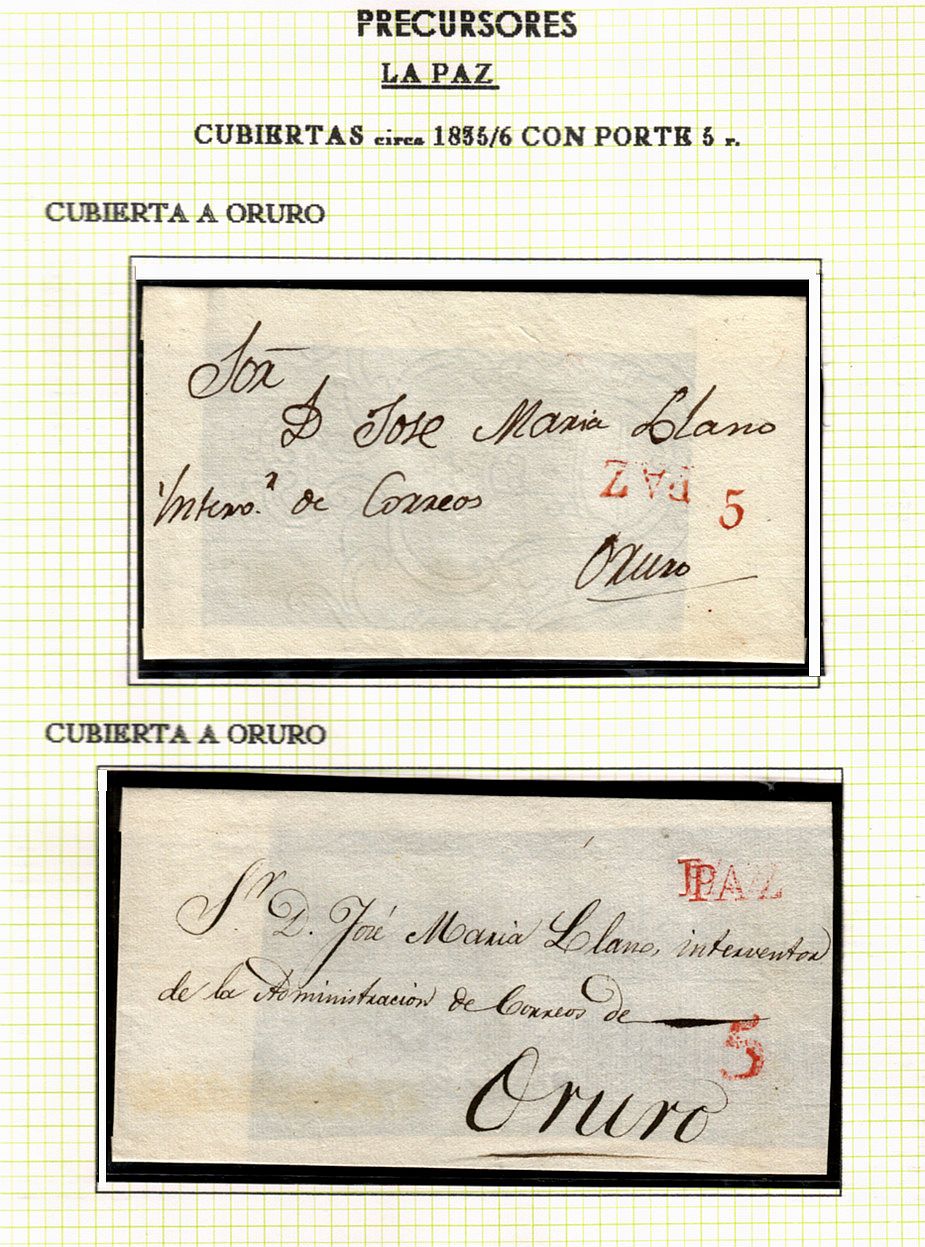 PRECURSORES
LA PAZ
CUBIERTAS circa 1835/6 CON PORTE 5 r.
CUBIERTA A ORURO
Sor
D Jose Maria Llano
Intervor. de Correos
PAZ
5
Oruro
CUBIERTA A ORURO
PAZ
Sr. D. José Maria Llano, interventor
de la Administracion de Correos de
5
Oruro